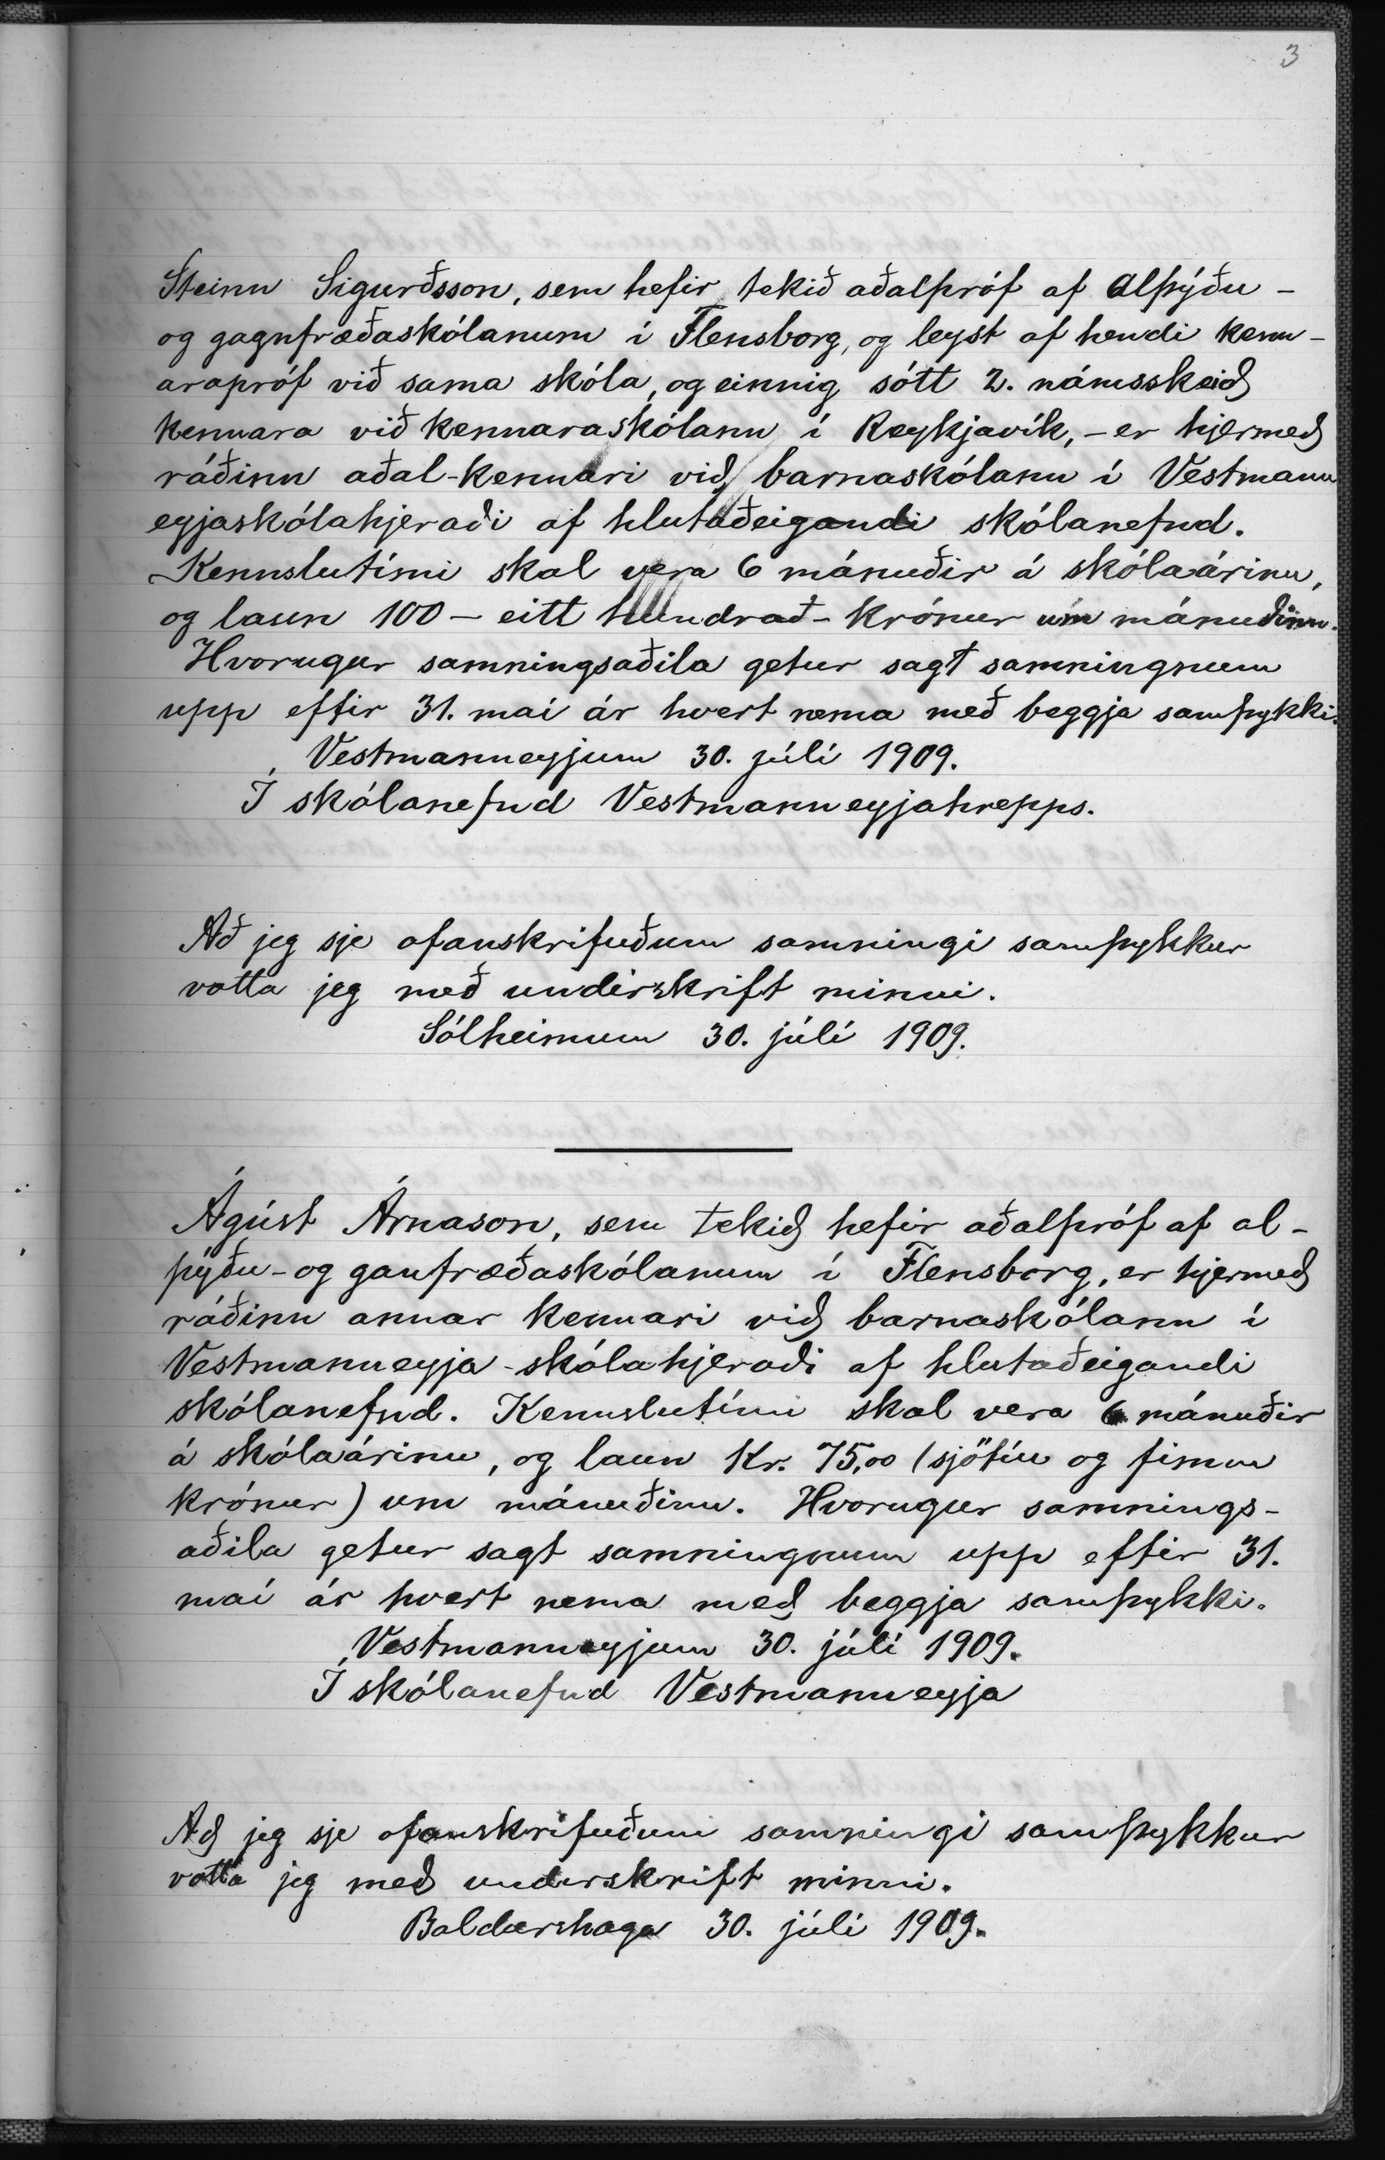 3
Steinn Sigurðsson, sem hefir tekið aðalpróf af Alþýðu-
og gagnfræðaskólanum í Flensborg, og leyst af hendi kenn-
arapróf við sama skóla, og einnig sótt 2. námsskeið
kennara við kennaraskólann í Reykjavík, - er hjermeð
ráðinn aðal-kennari við barnaskólann í Vestmann
eyjaskólahjeraði af hlutaðeigandi skólanefnd.
Kennslutími skal vera 6 mánuðir á skólaárinu,
og laun 100 - eitt hundrað - krónur um mánuðinn.
Hvorugur samningsaðila getur sagt samningnum
upp eftir 31. maí ár hvert nema með beggja samþykki.
Vestmanneyjum 30. júlí 1909.
Í skólanefnd Vestmanneyjahrepps.
Að jeg sje ofanskrifuðum samningi samþykkur
votta jeg með undirskrift minni.
Sólheimum 30. júlí 1909.
Ágúst Árnason, sem tekið hefir aðalpróf af al-
þýðu- og ganfræðaskólanum í Flensborg, er hjermeð
ráðinn annar kennari við barnaskólann í
Vestmanneyja-skólahjeraði af hlutaðeigandi
skólanefnd. Kennslutími skal vera 6 mánuðir
á skólaárinu, og laun Kr. 75,00 (sjötíu og fimm
krónur) um mánuðinn. Hvorugur samnings-
aðila getur sagt samningnum upp eftir 31.
maí ár hvert nema með beggja samþykki.
Vestmanneyjum 30. júlí 1909.
Í skólanefnd Vestmanneyja
Að jeg sje ofanskrifuðum samningi samþykkur
votta jeg með undirskrift minni.
Baldurshaga 30. júlí 1909.